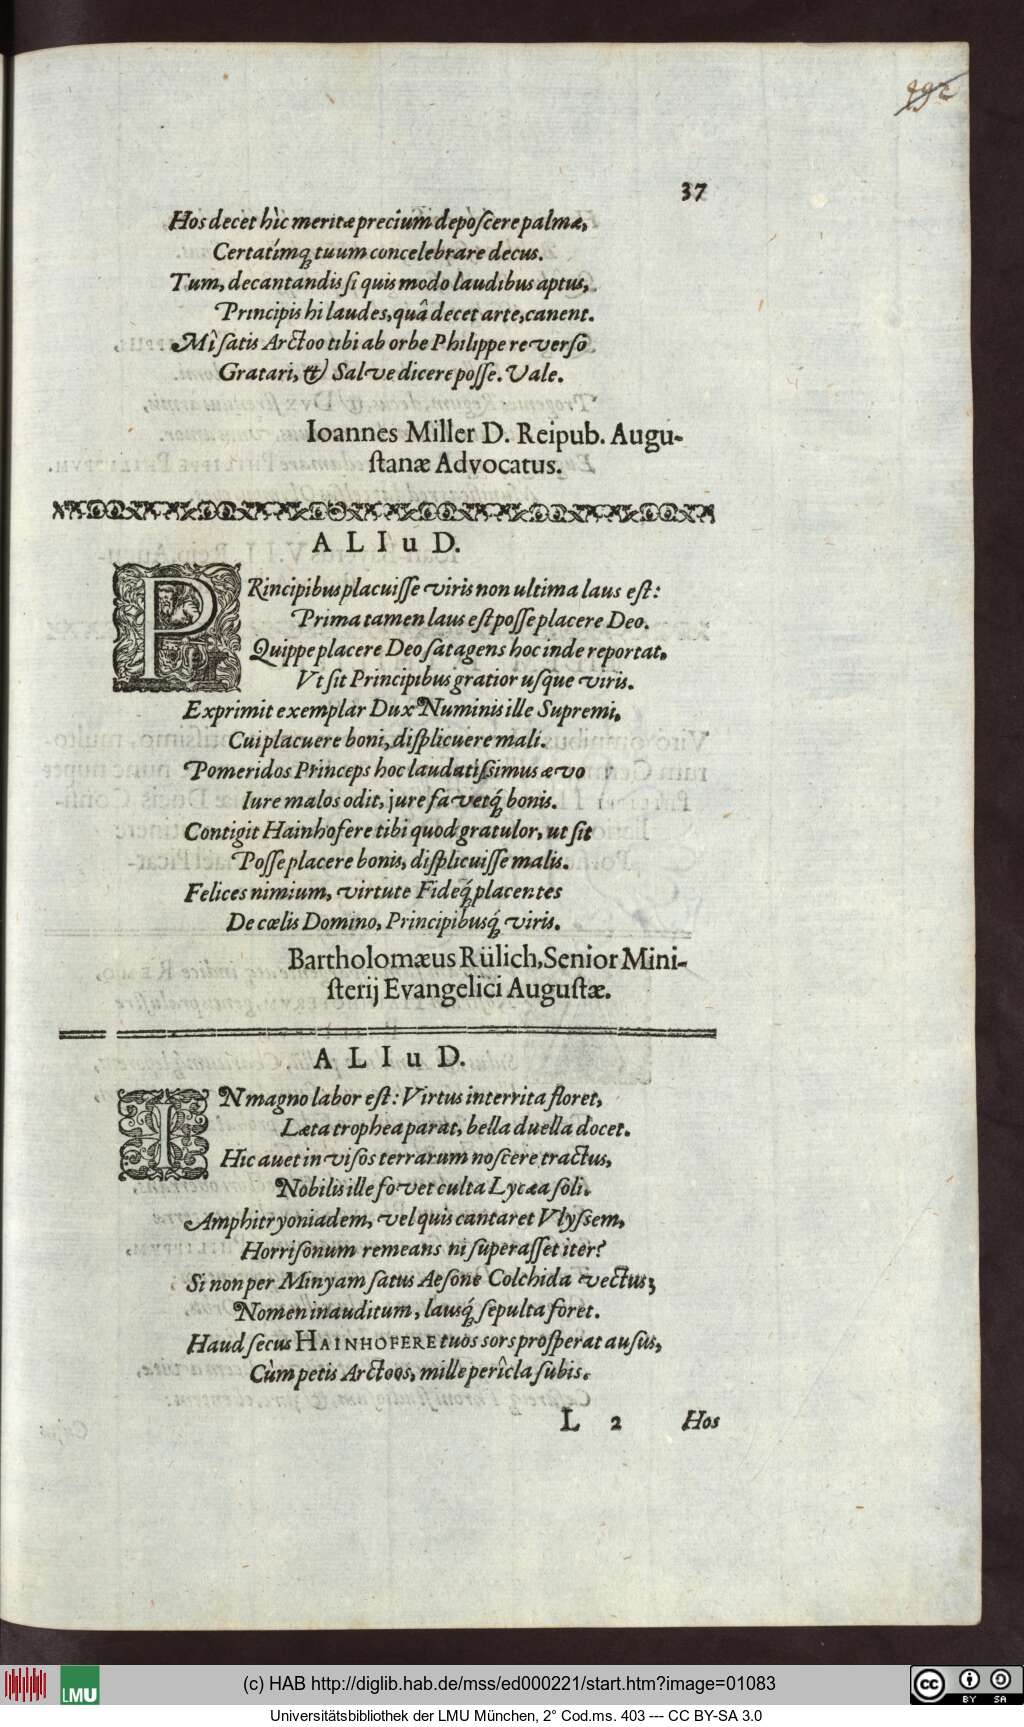 37
Hos decet hìc meritæ precium deposcere palmæ,
Certatímq; tuum concelebrare decus.
Tum, decantandis si quis modo laudibus aptus,
Principis hi laudes, quâ decet arte, canent.
Mî satis Arctoo tibi ab orbe Philippe reverso
Gratari, & Salve dicere posse. Vale.
Ioannes Miller D. Reipub. Augu-
stanæ Advocatus.
ALIuD.
PRincipibus placuisse viris non ultima laus est:
Prima tamen laus est posse placere Deo.
Quippe placere Deo satagens hoc inde reportat,
Vt sit Principibus gratior usque viris.
Exprimit exemplar Dux Numinis ille Supremi,
Cui placuere boni, displicuere mali.
Pomeridos Princeps hoc laudatissimus ævo
Iure malos odit, jure favetq́; bonis.
Contigit Hainhofere tibi quod gratulor, ut sit
Posse placere bonis, displicuisse malis.
Felices nimium, virtute Fideq́; placentes
De cœlis Domino, Principibusq́; viris.
Bartholomæus Rülich, Senior Mini-
sterij Evangelici Augustæ.
ALIuD.
IN magno labor est: Virtus interrita floret,
Læta trophea parat, bella duella docet.
Hic avet invisos terrarum noscere tractus,
Nobilis ille fovet culta Lycæa soli.
Amphitryoniadem, vel quis cantaret Vlyssem,
Horrisonum remeans ni superasset iter?
Si non per Minyam satus Aesone Colchida vectus;
Nomen inauditum, lausq́; sepulta foret.
Haud secus HAINHOFERE tuos sors prosperat ausus,
Cùm petis Arctoos, mille perîcla subis.
L 2 Hos
(c) HAB http://diglib.hab.de/mss/ed000221/start.htm?image=01083
Universitätsbibliothek der LMU München, 2° Cod.ms. 403 --- CC BY-SA 3.0
LMU
cc BY SA